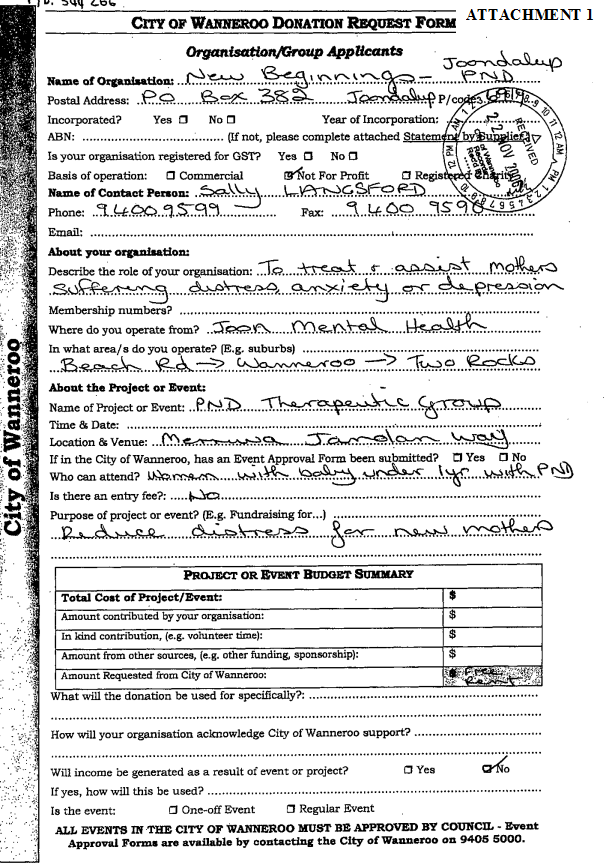 CITY OF WANNEROO DONATION REQUEST FORM
ATTACHMENT 1
Organisation/Group Applicants
Name of Organisation: New Beginnings - Joondalup PND
Postal Address: PO Box 382 Joondalup P/code:
Incorporated? Yes ☐ No ☐ Year of Incorporation:
ABN: (If not, please complete attached Statement by Supplier)
Is your organisation registered for GST? Yes ☐ No ☐
Basis of operation: ☐ Commercial ☑ Not For Profit ☐ Registered Charity
RECEIVED
22 NOV 2006
Name of Contact Person: Sally LANGSFORD
Phone: 9400 9599 Fax: 9400 9590
Email:
About your organisation:
Describe the role of your organisation: To treat & assist mothers
suffering distress, anxiety or depression
Membership numbers?
Where do you operate from? Joon Mental Health
In what area/s do you operate? (E.g. suburbs)
Beach Rd → Wanneroo → Two Rocks
About the Project or Event:
Name of Project or Event: PND Therapeutic Group
Time & Date:
Location & Venue: Merriwa Jandlan Way
If in the City of Wanneroo, has an Event Approval Form been submitted? ☐ Yes ☐ No
Who can attend? Women with baby under 1yr with PND
Is there an entry fee?: No
Purpose of project or event? (E.g. Fundraising for...)
Reduce distress for new mothers
PROJECT OR EVENT BUDGET SUMMARY
Total Cost of Project/Event: $
Amount contributed by your organisation: $
In kind contribution, (e.g. volunteer time): $
Amount from other sources, (e.g. other funding, sponsorship): $
Amount Requested from City of Wanneroo: $ Free Rent
What will the donation be used for specifically?:
How will your organisation acknowledge City of Wanneroo support?:
Will income be generated as a result of event or project? ☐ Yes ☑ No
If yes, how will this be used?
Is the event: ☐ One-off Event ☐ Regular Event
ALL EVENTS IN THE CITY OF WANNEROO MUST BE APPROVED BY COUNCIL - Event
Approval Forms are available by contacting the City of Wanneroo on 9405 5000.
City of Wanneroo